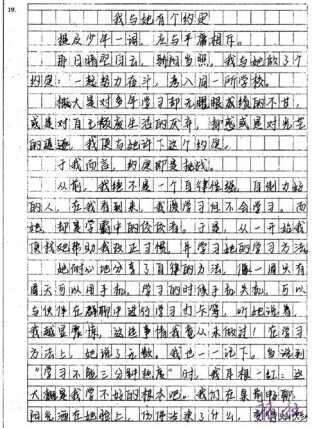 19.
我与她有个约定
挺庆少年一词,应与平庸相斥。
那日晴空白云,骄阳当照。我与她做了个
约定:一起努力奋斗,考入同一所学校。
概是对多年学习却无耀眼成绩的不甘,
或是对自己颓废生活的厌弃,抑或是对光芒
的追逐,我便与她许下这个约定。
于我而言,约定即是挑战。
从前,我绝不是一个自律性强,自制力好
的人,在我看来,我属学习但不会学习。而
她,却是学霸中的佼佼者。于是,从一开始我
便找她帮助我改正习惯,并学习她的学习方法。
她耐心地分享了自律的方法,像一周只有
周天可以用手机,学习的时候手机关机,可以
与伙伴在群聊中进行学习打卡等。听她说着,
我越显震惊,这些事情我竟从未做过!在学习
方法上,她说了无数。我也一一记下。当说到
“学习不能三分钟热度”时,我耳根一红:这
大概是我学不好的根本吧。我们在桌前畅聊,
阳光洒在她脸上,仿佛